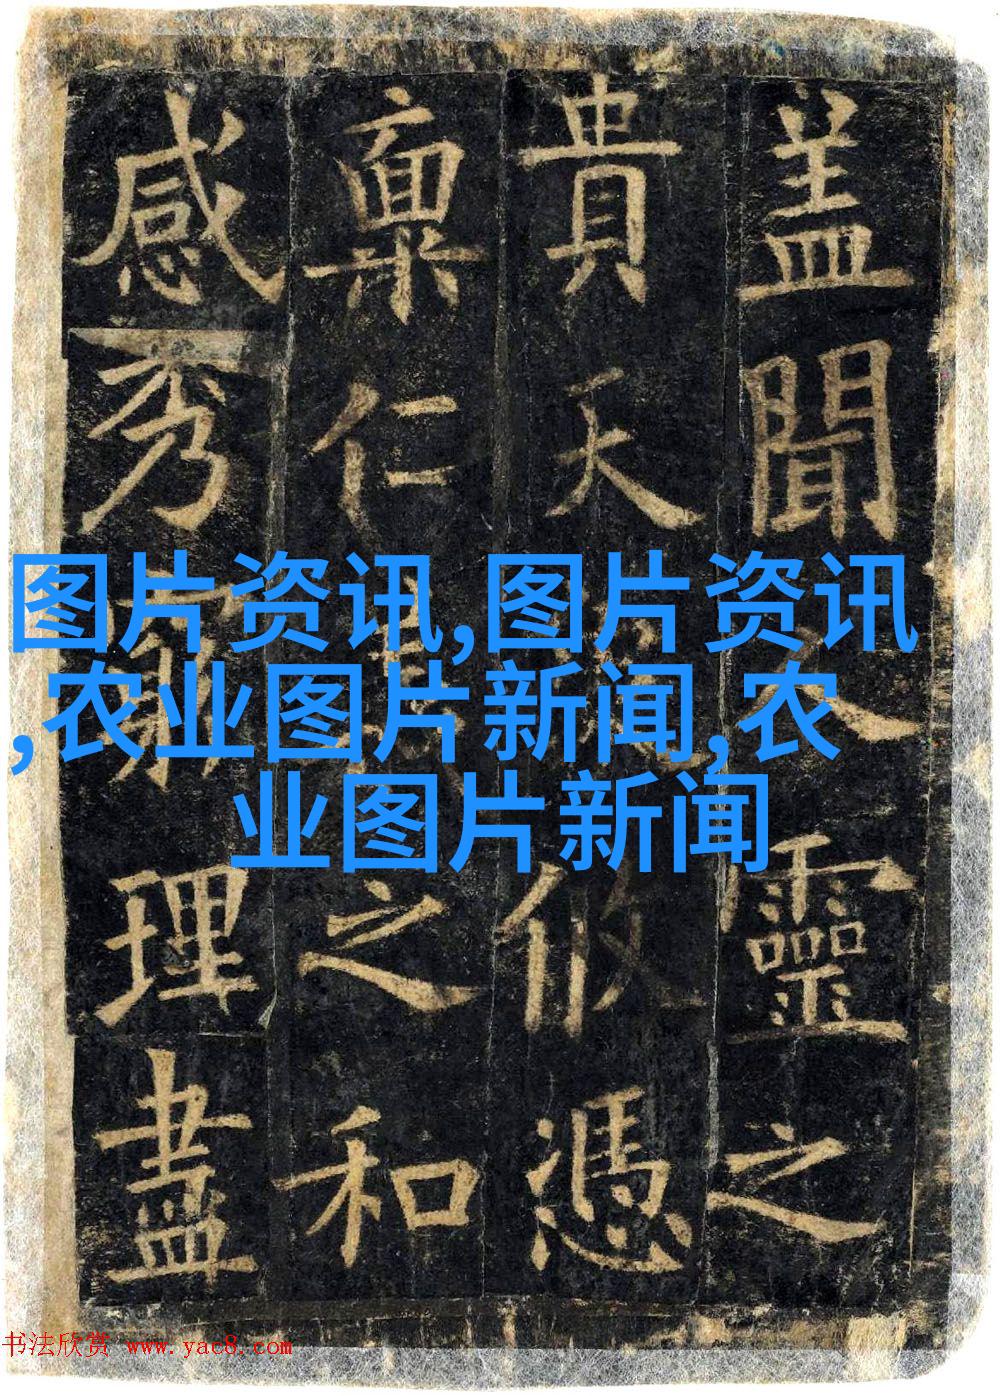 盖聞靈之
貴天攸憑
稟仁之和
感秀理盡
图片资讯,图片资讯
,农业图片新闻,农
业图片新闻
书法欣赏 www.yac8.com